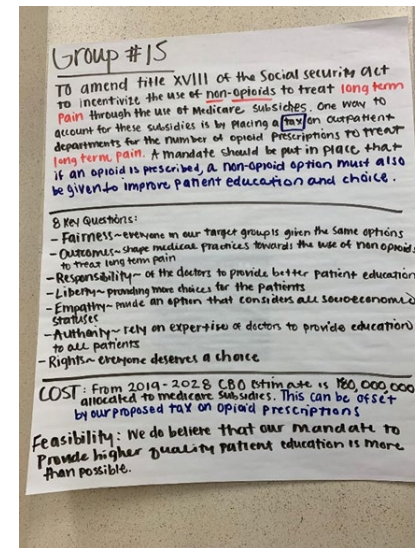 Group #15
To amend title XVIII of the Social security act
to incentivize the use of non-opioids to treat long term
pain through the use of Medicare subsidies. One way to
account for these subsidies is by placing a tax on outpatient
departments for the number of opioid prescriptions to treat
long term pain. A mandate should be put in place that
if an opioid is prescribed, a non-opioid option must also
be given to improve patient education and choice.
8 Key Questions:
- Fairness~everyone in our target group is given the same options
- Outcomes~shape medical practices towards the use of non opioids
to treat long term pain
- Responsibility~ of the doctors to provide better patient education
- Liberty~ providing more choices for the patients
- Empathy~made an option that considers all socioeconomic
statuses
- Authority~ rely on expertise of doctors to provide education
to all patients
- Rights~ everyone deserves a choice
COST: From 2019-2028 CBO Estimate is 180,000,000
allocated to medicare subsidies. This can be ofset
by our proposed tax on opioid prescriptions
Feasibility: We do believe that our mandate to
provide higher quality patient education is more
than possible.